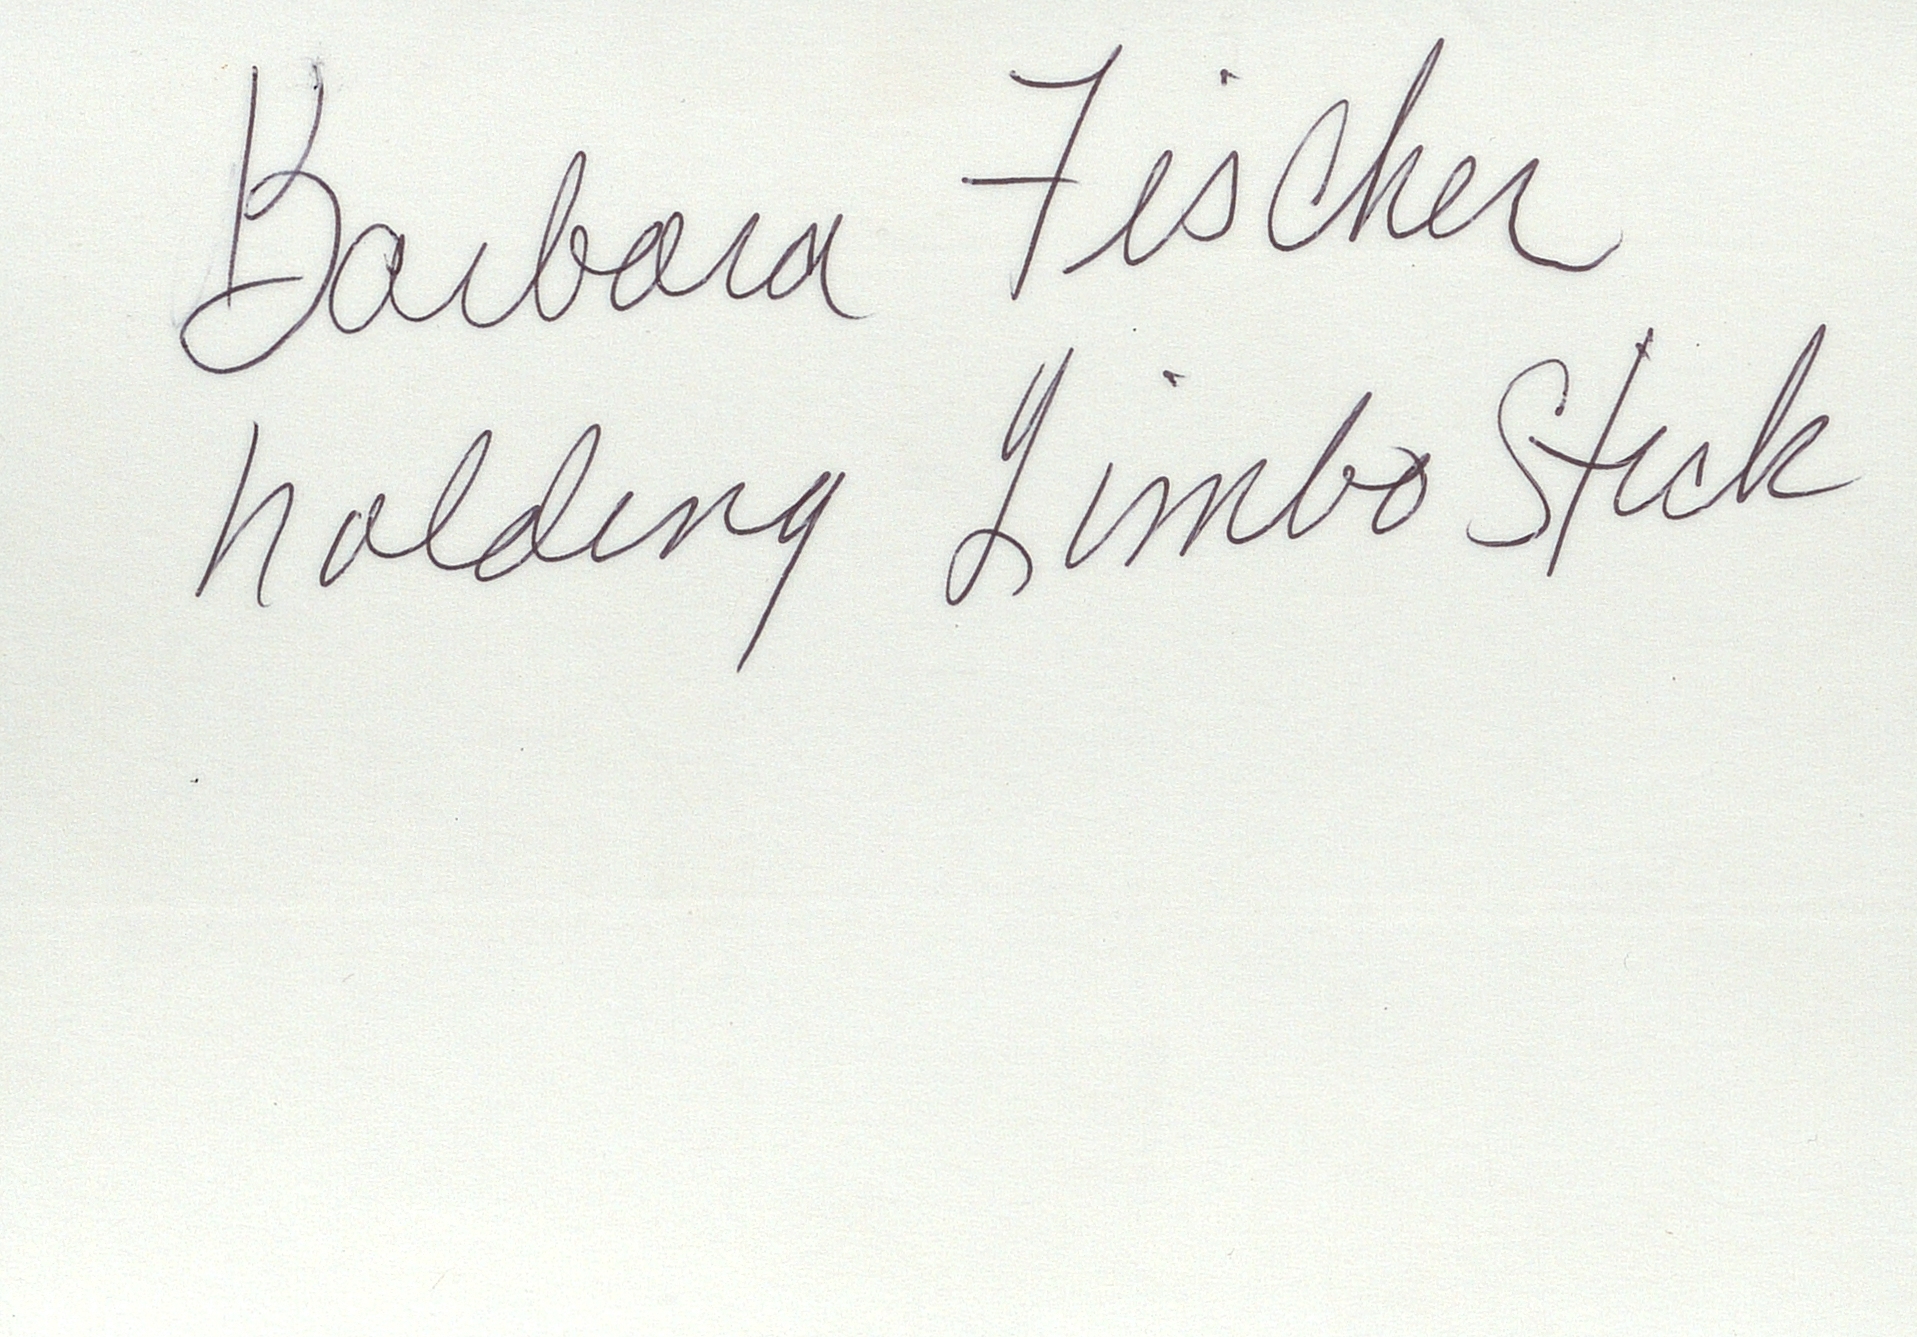 Barbara Fischer
holding Limbo Stick